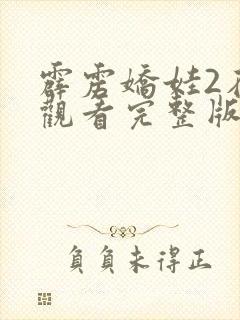 霹雳嬌娃2在
觀看完整版
負負未得正